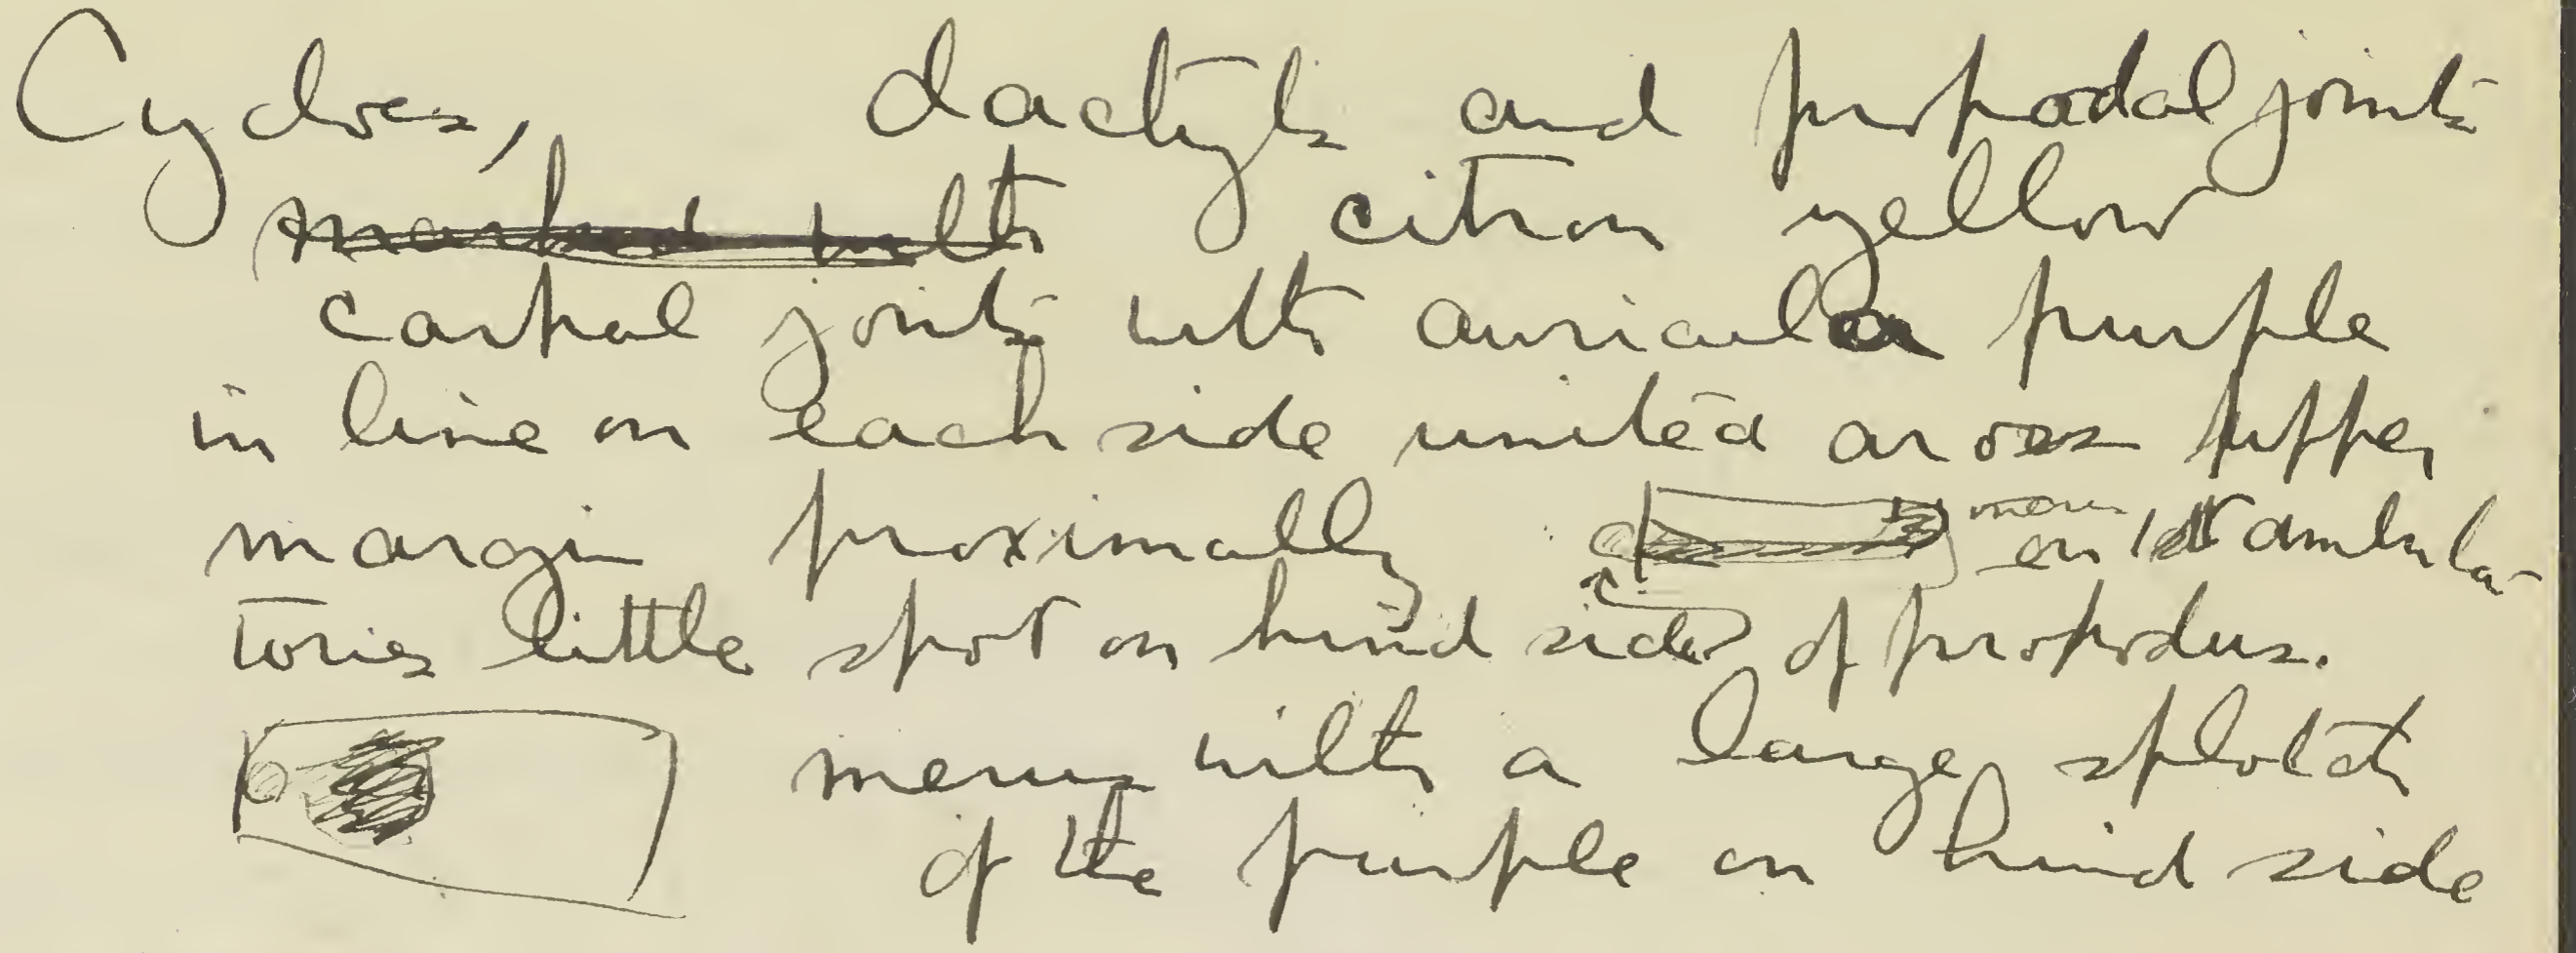 Cydoes, dactyls and propodal joints
marked with citron yellow
carpal joints with auricula purple
in line on each side united across upper
margin proximally merus on 1st ambula-
tories little spot on hind side of propodus.
merus with a large splotch
of the purple on hind side